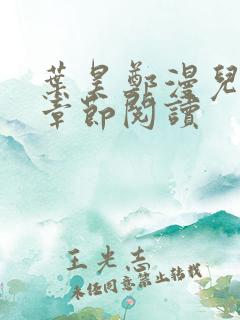 葉昊鄭漫兒
章節閱讀
王光志
未經同意禁止轉載